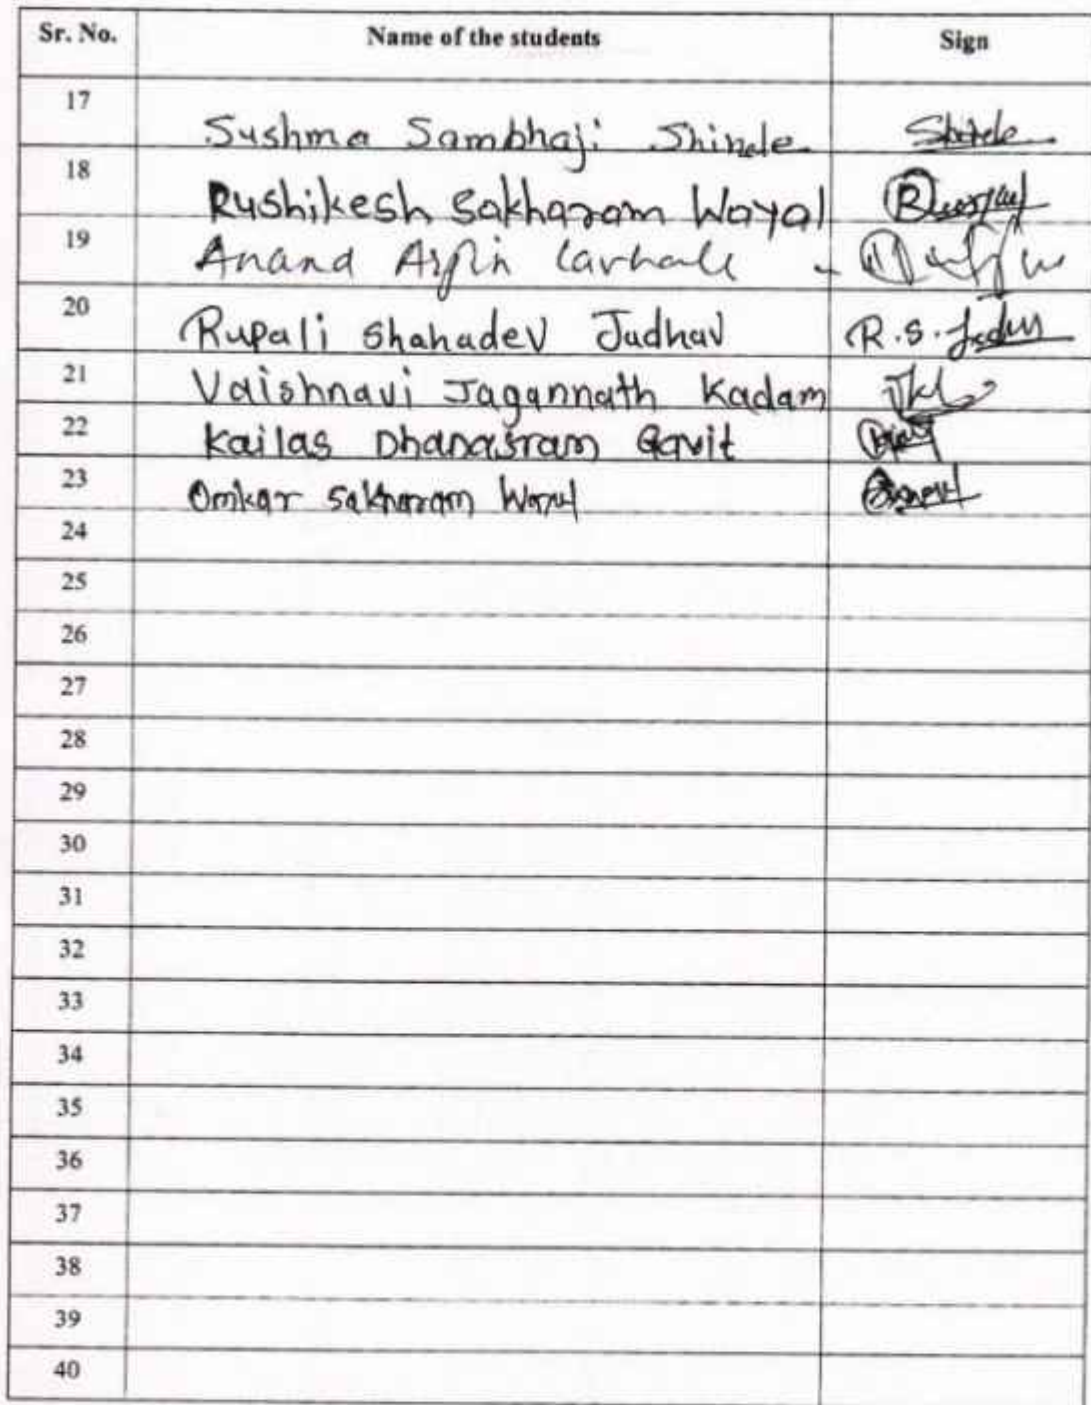 Sr. No. Name of the students Sign
17 Sushma Sambhaji Shinde Shinde
18 Rushikesh Sakharam Wayal
19 Anand
20 Rupali Shahadev Jadhav R.S. Jadhav
21 Vaishnavi Jagannath Kadam
22 Kailas Gavit
23 Omkar Sakharam Wayal
24
25
26
27
28
29
30
31
32
33
34
35
36
37
38
39
40